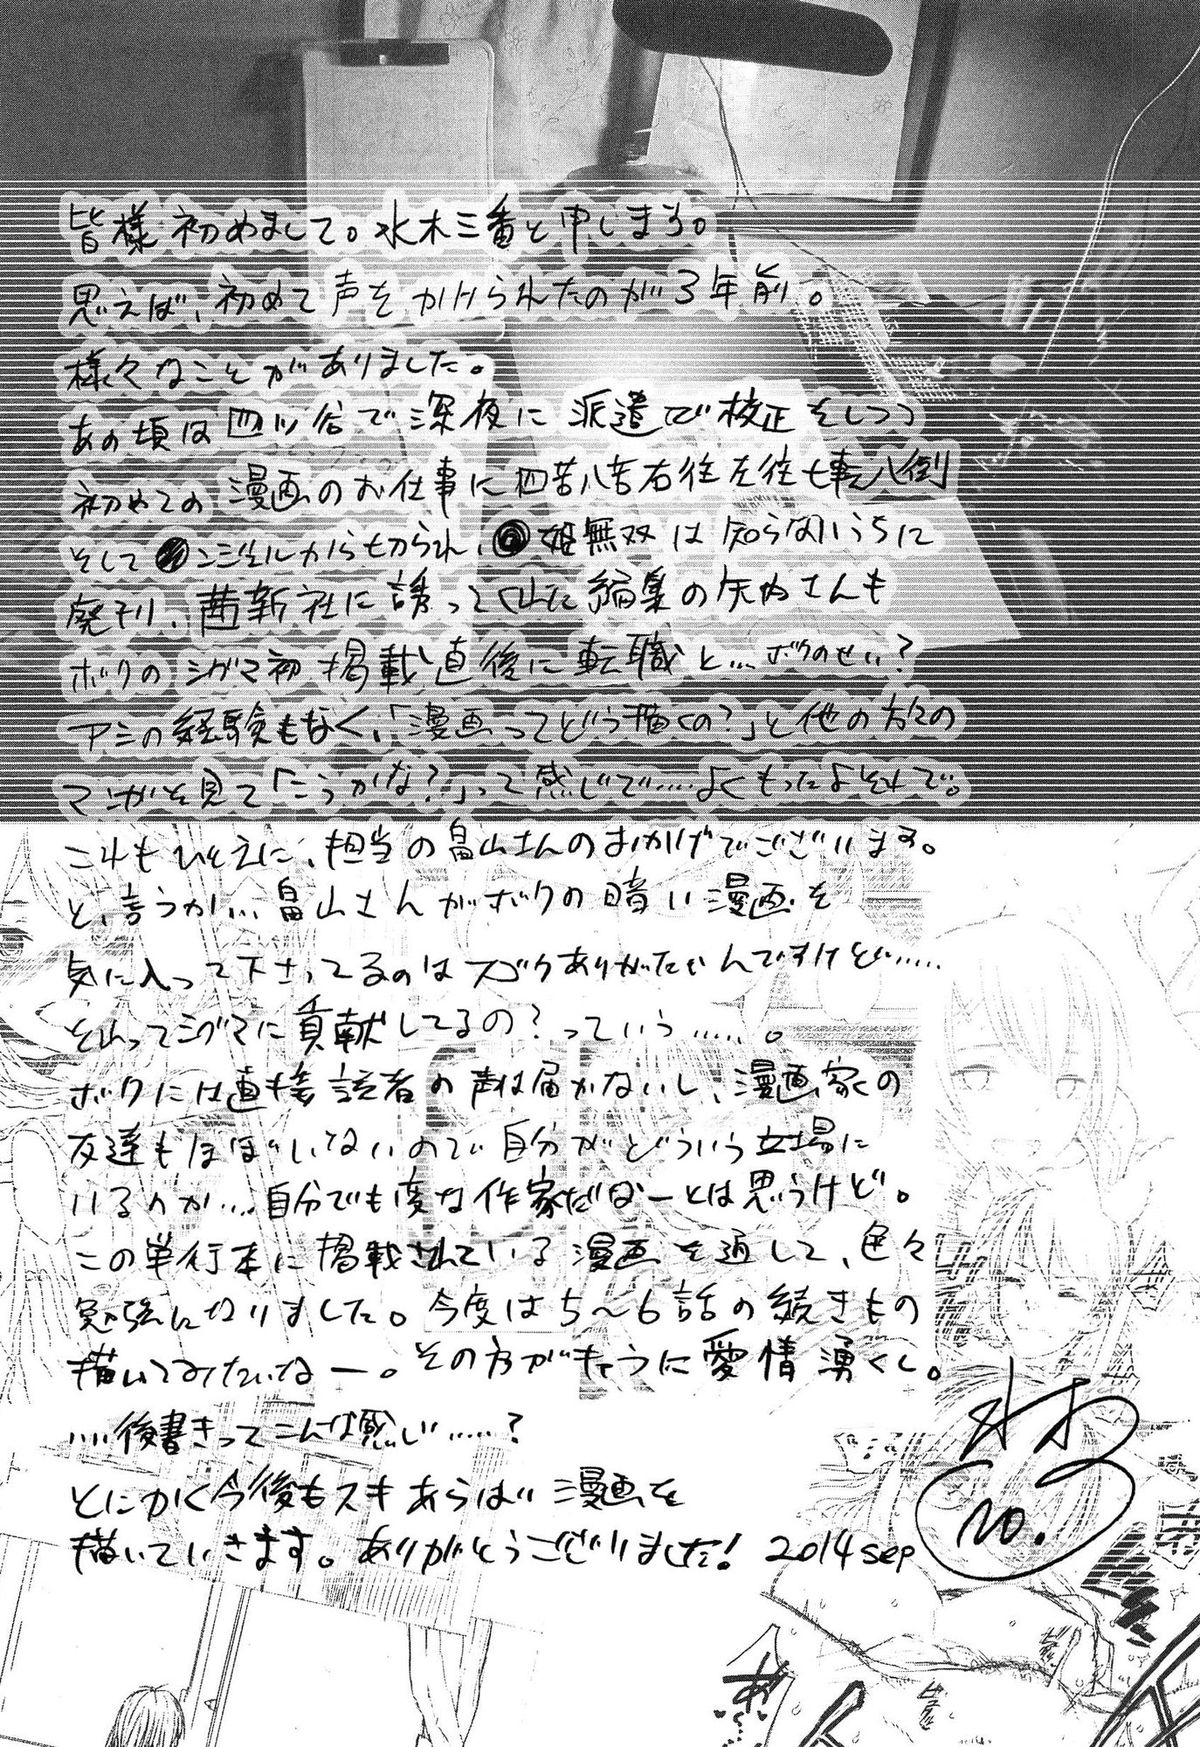 皆様初めまして。水木三番と申します。
思えば、初めて声をかけられたのが3年前。
様々なことがありました。
あの頃は四ツ谷で深夜に派遣で校正をしつつ
初めての漫画のお仕事に四苦八苦右往左往七転八倒
そして●ンジェルからも切られ、●姫無双は知らないうちに
廃刊、茜新社に誘ってくれた編集の矢内さんも
ボクのシグマ初掲載直後に転職と…ボクのせい?
アシの経験もなく、「漫画ってどう描くの?」と他の方々の
マンガを見て「こうかな?」って感じで……よくもったよそれで。
これもひとえに、担当の畠山さんのおかげでございます。
と、言うか…畠山さんがボクの暗い漫画を
気に入って下さってるのはスゴクありがたいんですけど……
それってシグマに貢献してるの?っていう……。
ボクには直接読者の声は届かないし、漫画家の
友達もほぼいないので自分がどういう立場に
いるのか…自分でも変な作家だなーとは思うけど。
この単行本に掲載されている漫画を通して、色々
勉強になりました。今度は5〜6話の続きもの
描いてみたいなー。その方がキャラに愛情湧くし。
……後書きってこんな感じ……?
とにかく今後もスキあらば漫画を
描いていきます。ありがとうございました! 2014sep
no.